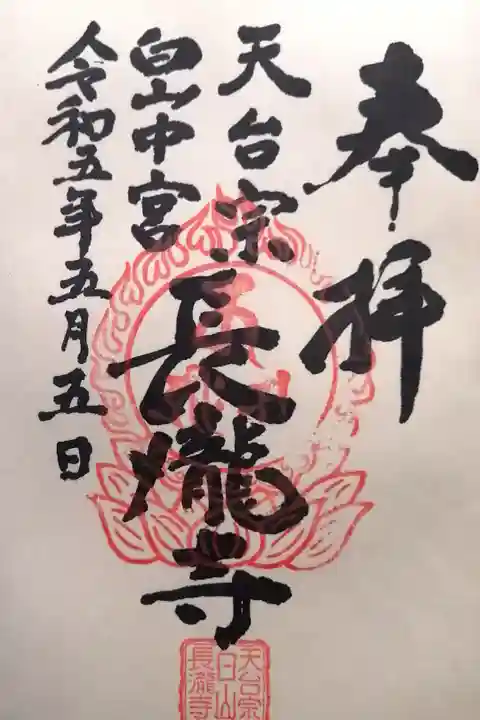 奉拝
天台宗
白山中宮
長瀧寺
令和五年五月五日
天台宗
白山
長瀧寺